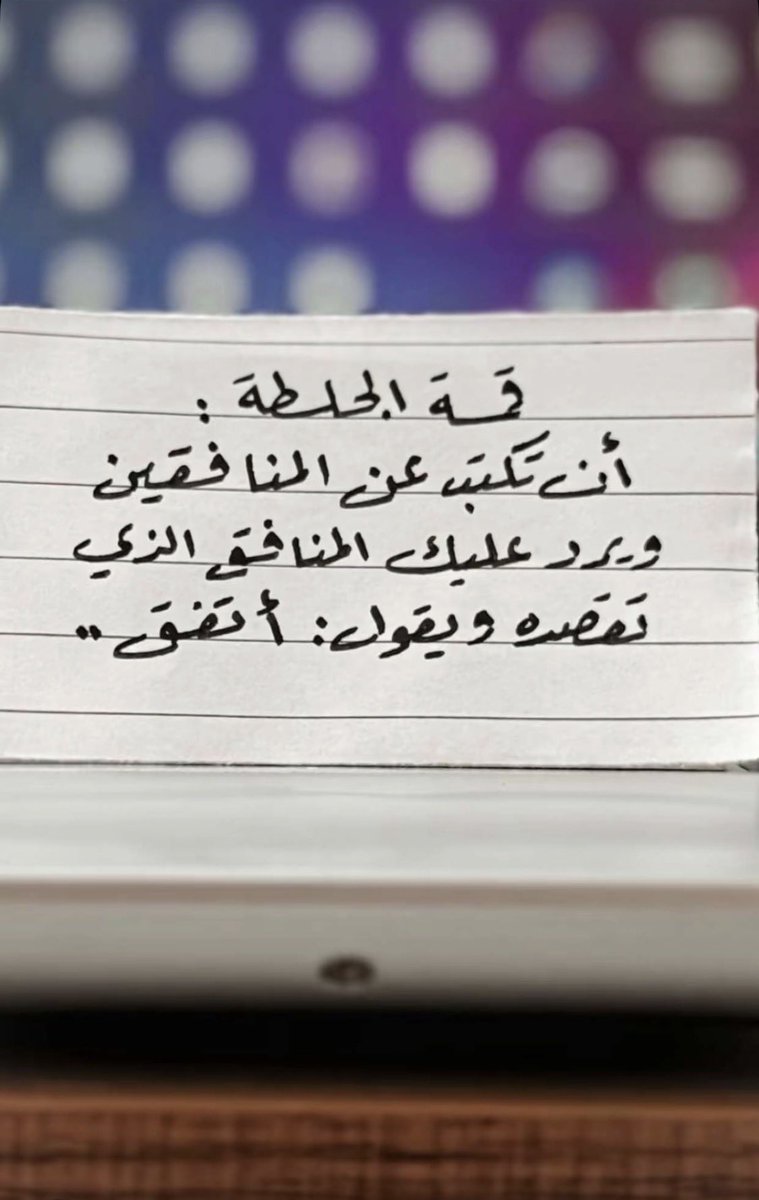 قمة الجلطة :
أن تكتب عن المنافقين
ويرد عليك المنافق الذي
تقصده ويقول: أتفق ..